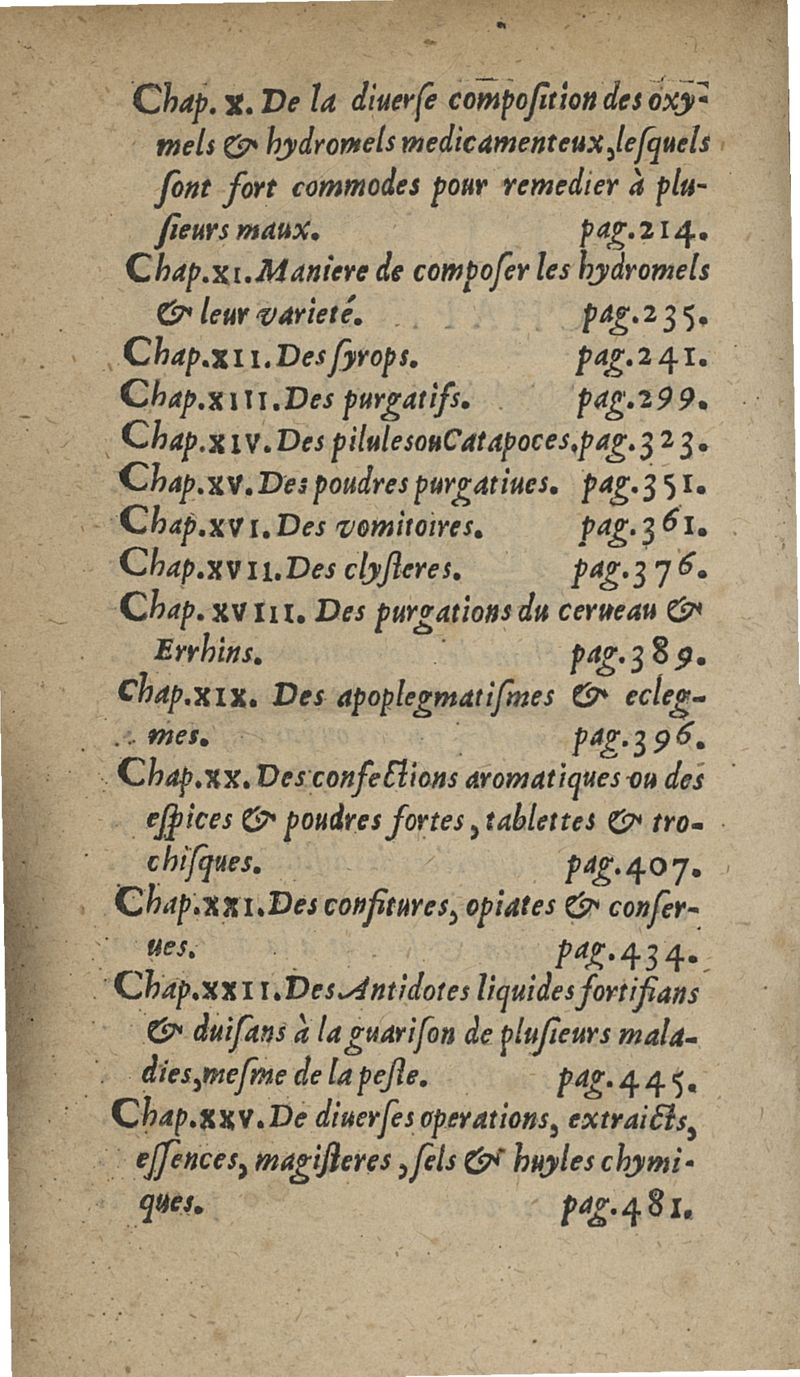 Chap. X. De la diuerſe compoſition des oxy-
mels & hydromels medicamenteux, leſquels
ſont fort commodes pour remedier à plu-
ſieurs maux. pag. 214.
Chap. XI. Maniere de compoſer les hydromels
& leur varieté. pag. 235.
Chap. XII. Des ſyrops. pag. 241.
Chap. XIII. Des purgatifs. pag. 299.
Chap. XIV. Des pilules ou Catapoces. pag. 323.
Chap. XV. Des poudres purgatiues. pag. 351.
Chap. XVI. Des vomitoires. pag. 361.
Chap. XVII. Des clyſteres. pag. 376.
Chap. XVIII. Des purgations du cerueau &
Errhins. pag. 389.
Chap. XIX. Des apoplegmatiſmes & ecleg-
mes. pag. 396.
Chap. XX. Des confections aromatiques ou des
eſpices & poudres fortes, tablettes & tro-
chiſques. pag. 407.
Chap. XXI. Des confitures, opiates & conſer-
ues. pag. 434.
Chap. XXII. Des Antidotes liquides fortifians
& duiſans à la guariſon de pluſieurs mala-
dies, meſme de la peſte. pag. 445.
Chap. XXV. De diuerſes operations, extraicts,
eſſences, magiſteres, ſels & huyles chymi-
ques. pag. 481.